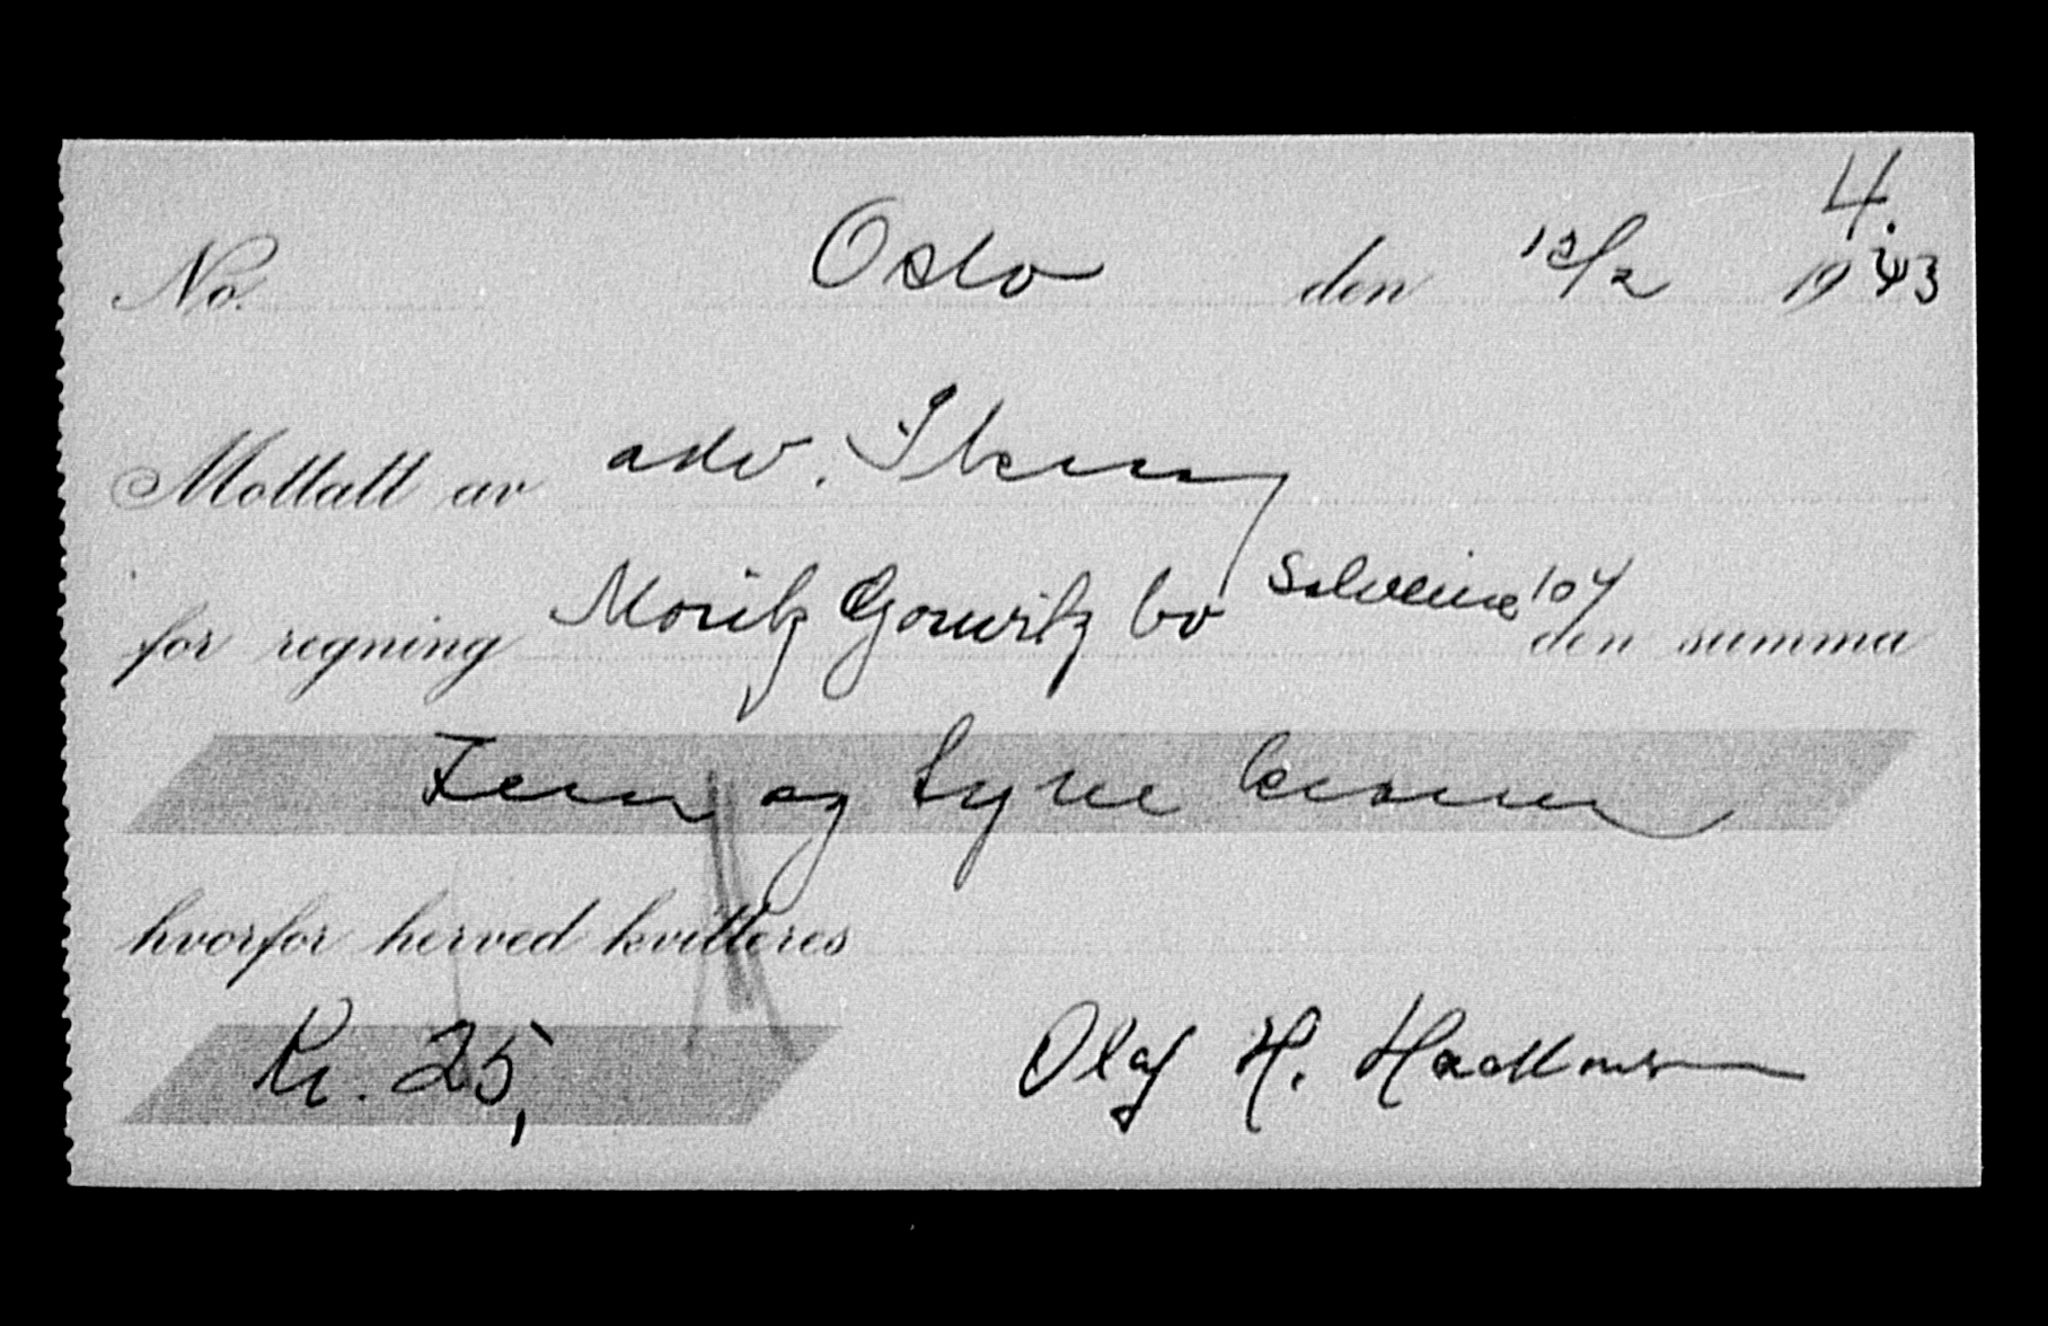 4.
No. Oslo den 12/2 1943
Mottatt av adv.
for regning Moritz Gorwitz bo 104 den summa
Fem og tyve kroner
hvorfor herved kvitteres
Kr. 25, Olaf H.